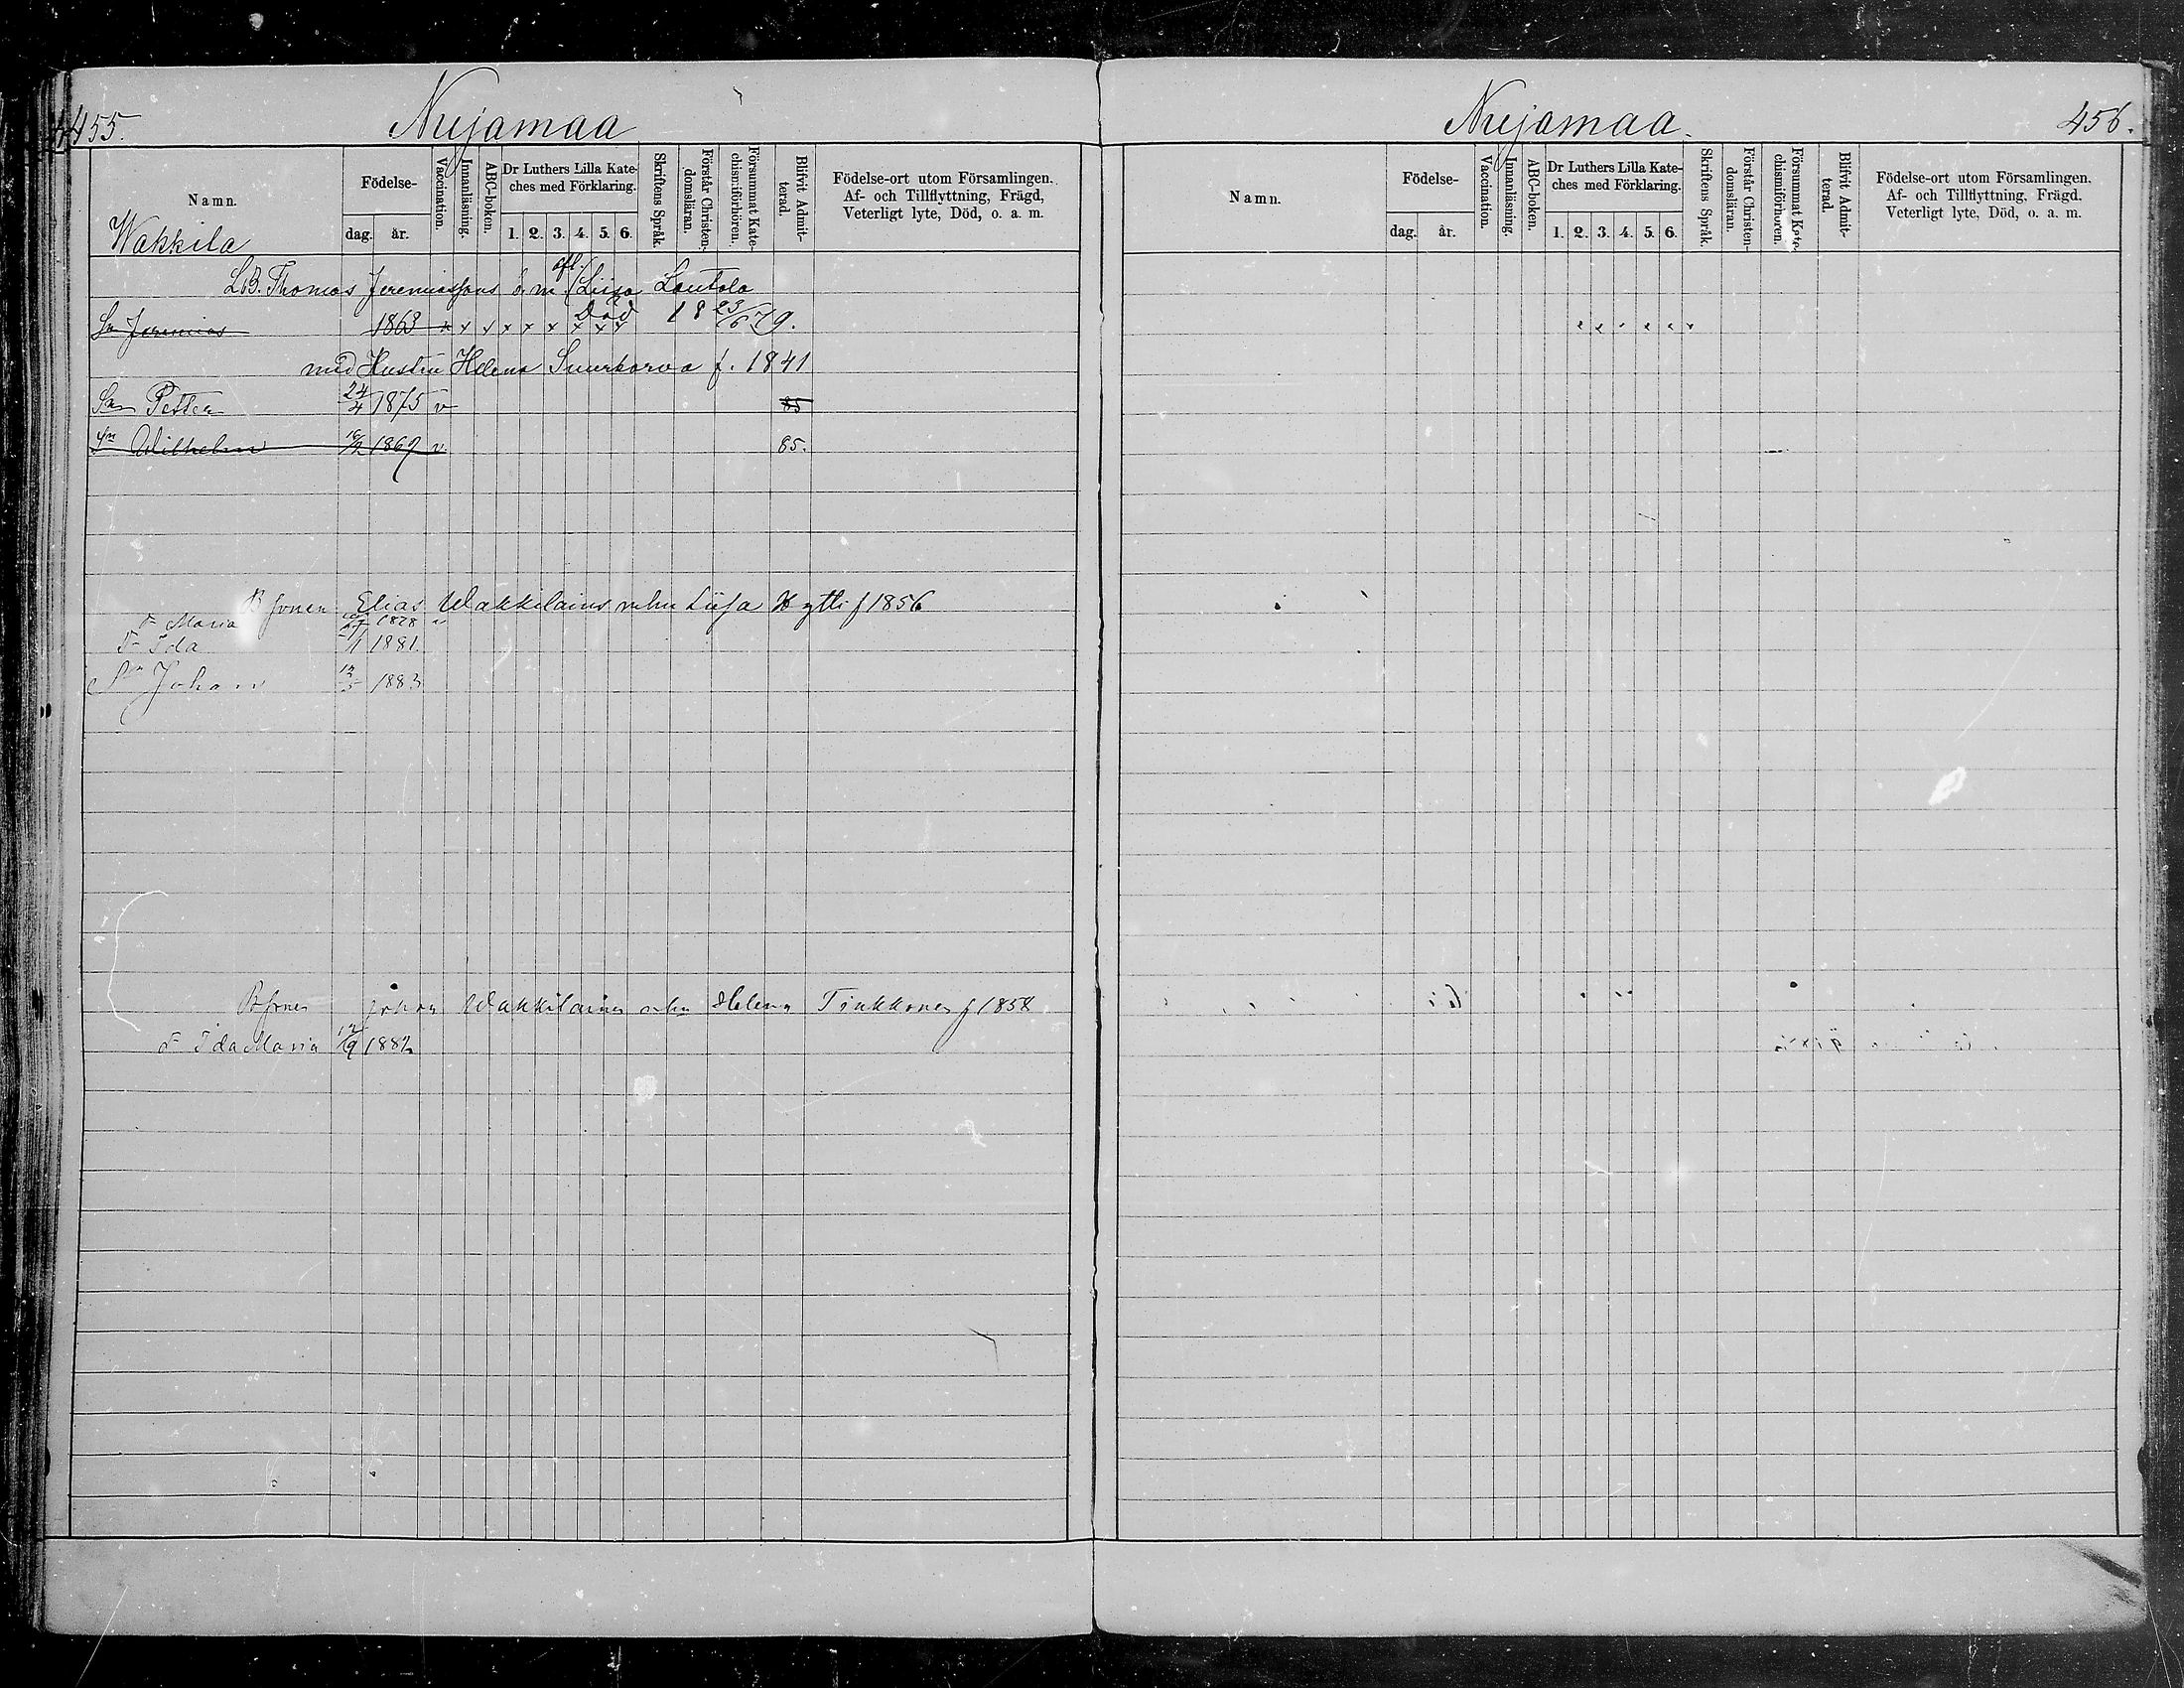 455.
Nuijamaa
Namn.
Födelse-
dag. år.
Vaccination.
Innanläsning.
ABC-boken.
Dr Luthers Lilla Kate-
ches med Förklaring.
1. 2. 3. 4. 5. 6.
Skriftens Språk.
Förstår Christen-
domsläran.
Försummat Kate-
chismiförhören.
Blifvit Admit-
terad.
Födelse-ort utom Församlingen.
Af- och Tillflyttning, Frägd,
Veterligt lyte, Död, o. a. m.
Wakkila
afl.
LB. Thomas Jeremiassons b. m. (Liisa Lautala
Död 18 23/6 79.
Sn Jeremias 1863 x x x x x x x x x
med Hustru Helena Suurkorva f. 1841
Sn Petter 24/4 1875 v 85
Sn Wilhelm 16/2 1867 v. 85.
Bsonen Elias Wakkilains mhu Liisa Hytti f 1856
Dr Maria 1878 v
Dr Ida 27/1 1881.
Sn Johan 13/5 1883
Bsonen Johan Wakkilaines mhu Helena Tiukkanen f 1858
Dr Ida Maria 12/9 1882
Nuijamaa.
456.
Namn.
Födelse-
dag. år.
Vaccination.
Innanläsning.
ABC-boken.
Dr Luthers Lilla Kate-
ches med Förklaring.
1. 2. 3. 4. 5. 6.
Skriftens Språk.
Förstår Christen-
domsläran.
Försummat Kate-
chismiförhören.
Blifvit Admit-
terad.
Födelse-ort utom Församlingen.
Af- och Tillflyttning, Frägd.
Veterligt lyte, Död, o. a. m.